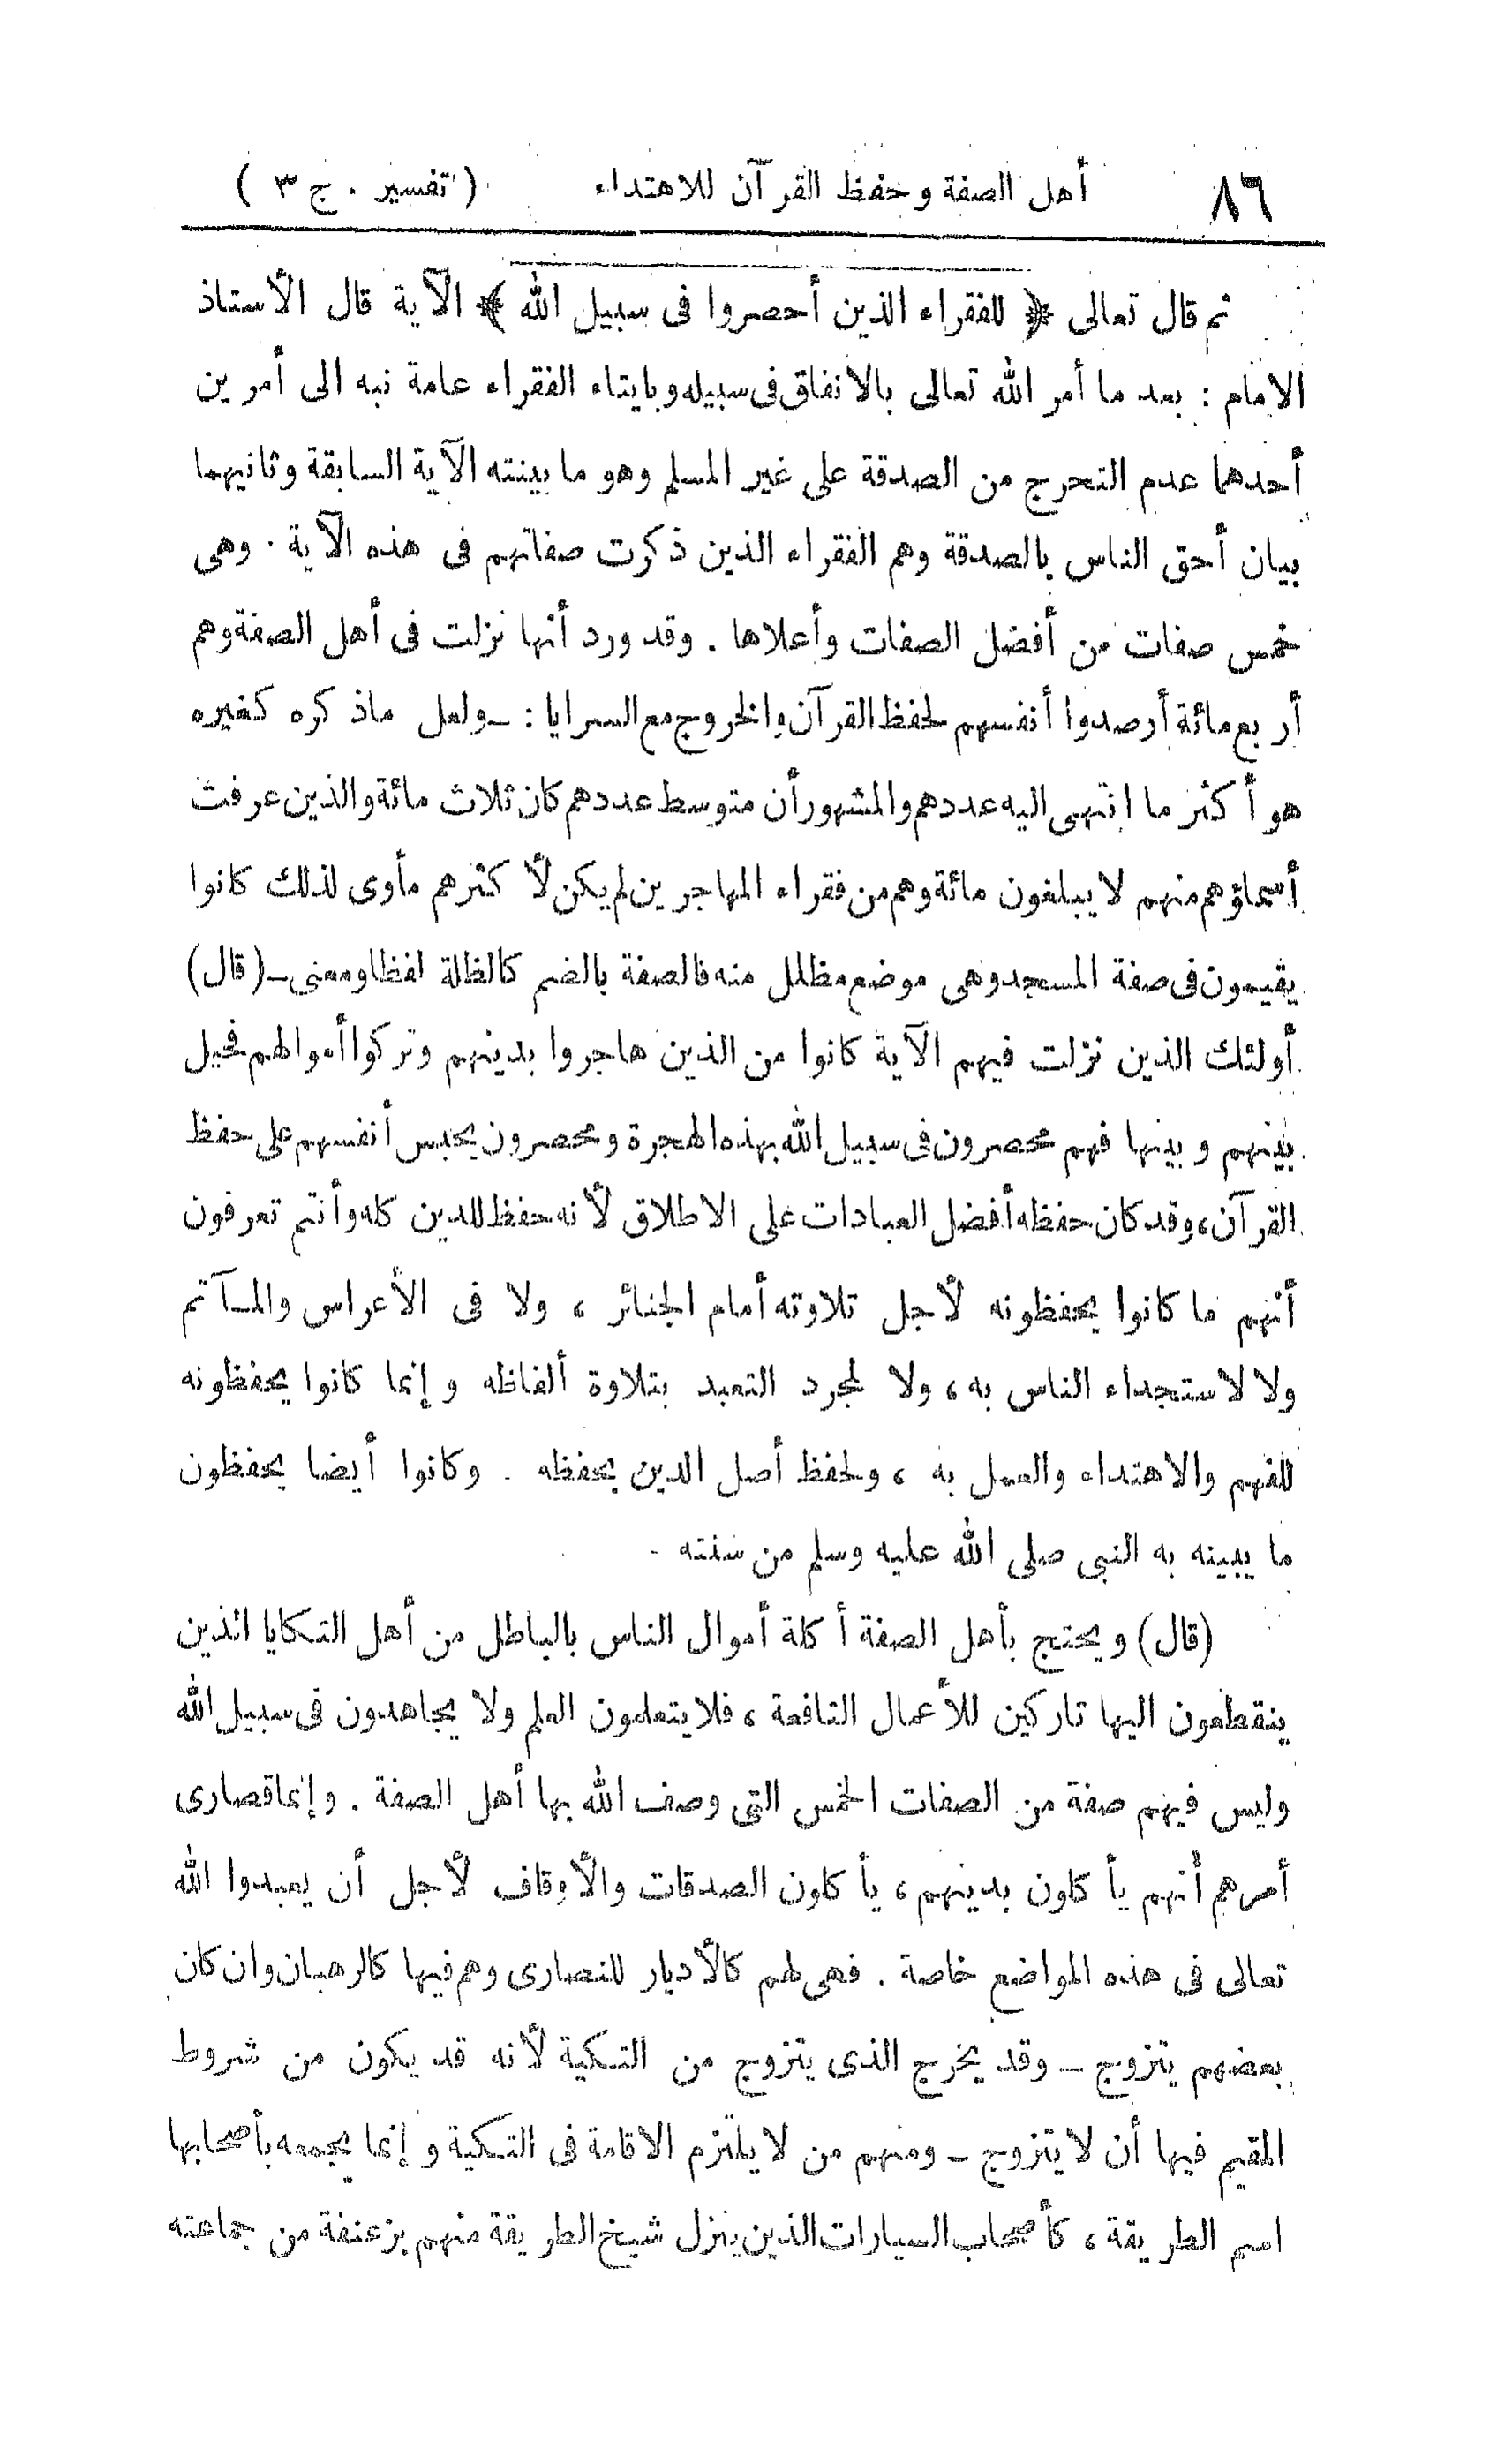 ٨٦ أهل الصفة وحفظ القرآن للاهتداء (تفسير . ج ٣)
ثم قال تعالى ﴿ للفقراء الذين أحصروا فى سبيل الله ﴾ الآية قال الأستاذ
الامام : بعد ما أمر الله تعالى بالانفاق فى سبيله وبايتاء الفقراء عامة نبه الى أمرين
أحدهما عدم التحرج من الصدقة على غير المسلم وهو ما بينته الآية السابقة وثانيهما
بيان أحق الناس بالصدقة وهم الفقراء الذين ذكرت صفاتهم فى هذه الآية . وهى
خمس صفات من أفضل الصفات وأعلاها . وقد ورد أنها نزلت فى أهل الصفة وهم
أربع مائة أرصدوا أنفسهم لحفظ القرآن والخروج مع السرايا : ــ ولعل ماذكره كغيره
هو أكثر ما انتهى اليه عددهم والمشهور أن متوسط عددهم كان ثلاث مائة والذين عرفت
أسماؤهم منهم لا يبلغون مائة وهم من فقراء المهاجرين لم يكن لأكثرهم مأوى لذلك كانوا
يقيمون فى صفة المسجد وهى موضع مظلل منه فالصفة بالضم كالظلة لفظا ومعنى ــ (قال)
أولئك الذين نزلت فيهم الآية كانوا من الذين هاجروا بدينهم وتركوا أموالهم فحيل
بينهم وبينها فهم محصرون فى سبيل الله بهذه الهجرة ومحصرون بحبس أنفسهم على حفظ
القرآن، وقد كان حفظه أفضل العبادات على الاطلاق لأنه حفظ للدين كله وأنتم تعرفون
أنهم ما كانوا يحفظونه لأجل تلاوته أمام الجنائز ، ولا فى الأعراس والمآتم
ولا لاستجداء الناس به ، ولا لمجرد التعبد بتلاوة ألفاظه وإنما كانوا يحفظونه
للفهم والاهتداء والعمل به ، ولحفظ أصل الدين بحفظه . وكانوا أيضا يحفظون
ما يبينه به النبى صلى الله عليه وسلم من سنته .
(قال) ويحتج بأهل الصفة أكلة أموال الناس بالباطل من أهل التكايا الذين
ينقطعون اليها تاركين للأعمال النافعة ، فلا يتعلمون العلم ولا يجاهدون فى سبيل الله
وليس فيهم صفة من الصفات الخمس التى وصف الله بها أهل الصفة . وإنما قصارى
أمرهم أنهم يأكلون بدينهم ، يأكلون الصدقات والأوقاف لأجل أن يعبدوا الله
تعالى فى هذه المواضع خاصة . فهى لهم كالأديار للنصارى وهم فيها كالرهبان وان كان
بعضهم يتزوج ــ وقد يخرج الذى يتزوج من التكية لأنه قد يكون من شروط
المقيم فيها أن لا يتزوج ــ ومنهم من لا يلتزم الاقامة فى التكية وإنما يجمعه بأصحابها
اسم الطريقة ، كأصحاب السيارات الذين ينزل شيخ الطريقة منهم بزعنفة من جماعته